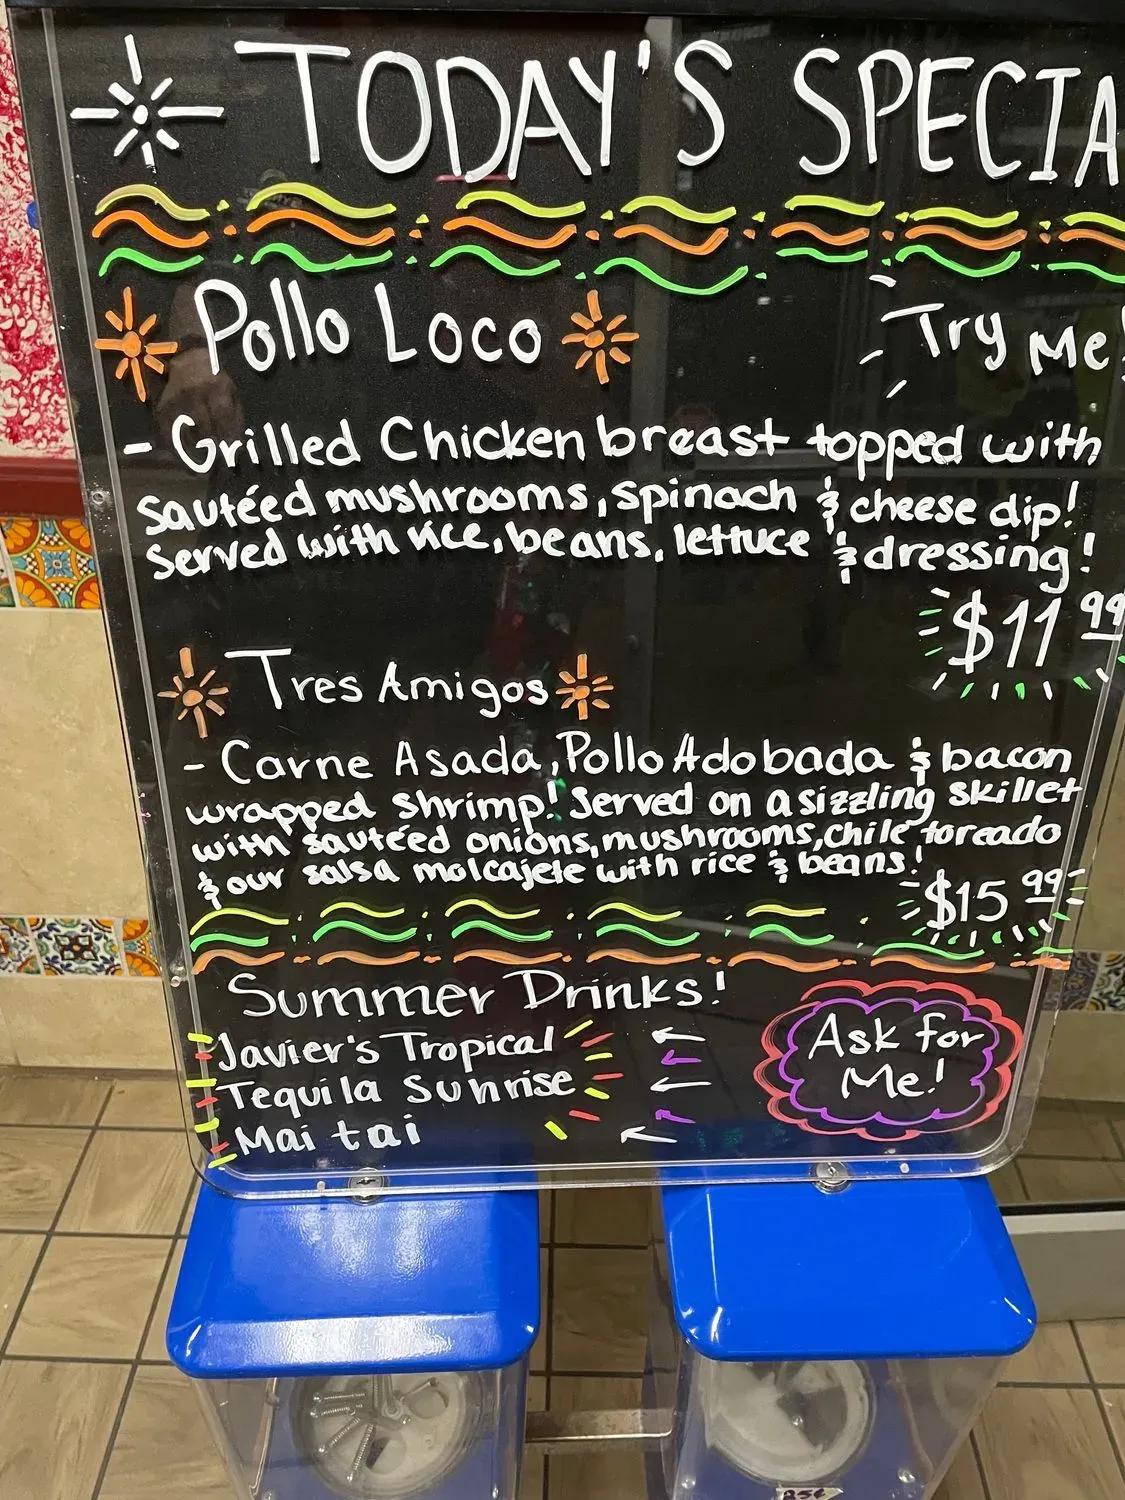 TODAY'S SPECIA
Pollo Loco
Try Me!
- Grilled Chicken breast topped with
sautéed mushrooms, spinach & cheese dip!
Served with rice, beans, lettuce & dressing!
$11 99
Tres Amigos
- Carne Asada, Pollo Adobada & bacon
wrapped shrimp! Served on a sizzling skillet
with sautéed onions, mushrooms, chile toreado
& our salsa molcajete with rice & beans!
$15 99
Summer Drinks!
Javier's Tropical
Tequila Sunrise
Mai tai
Ask for
Me!
25¢